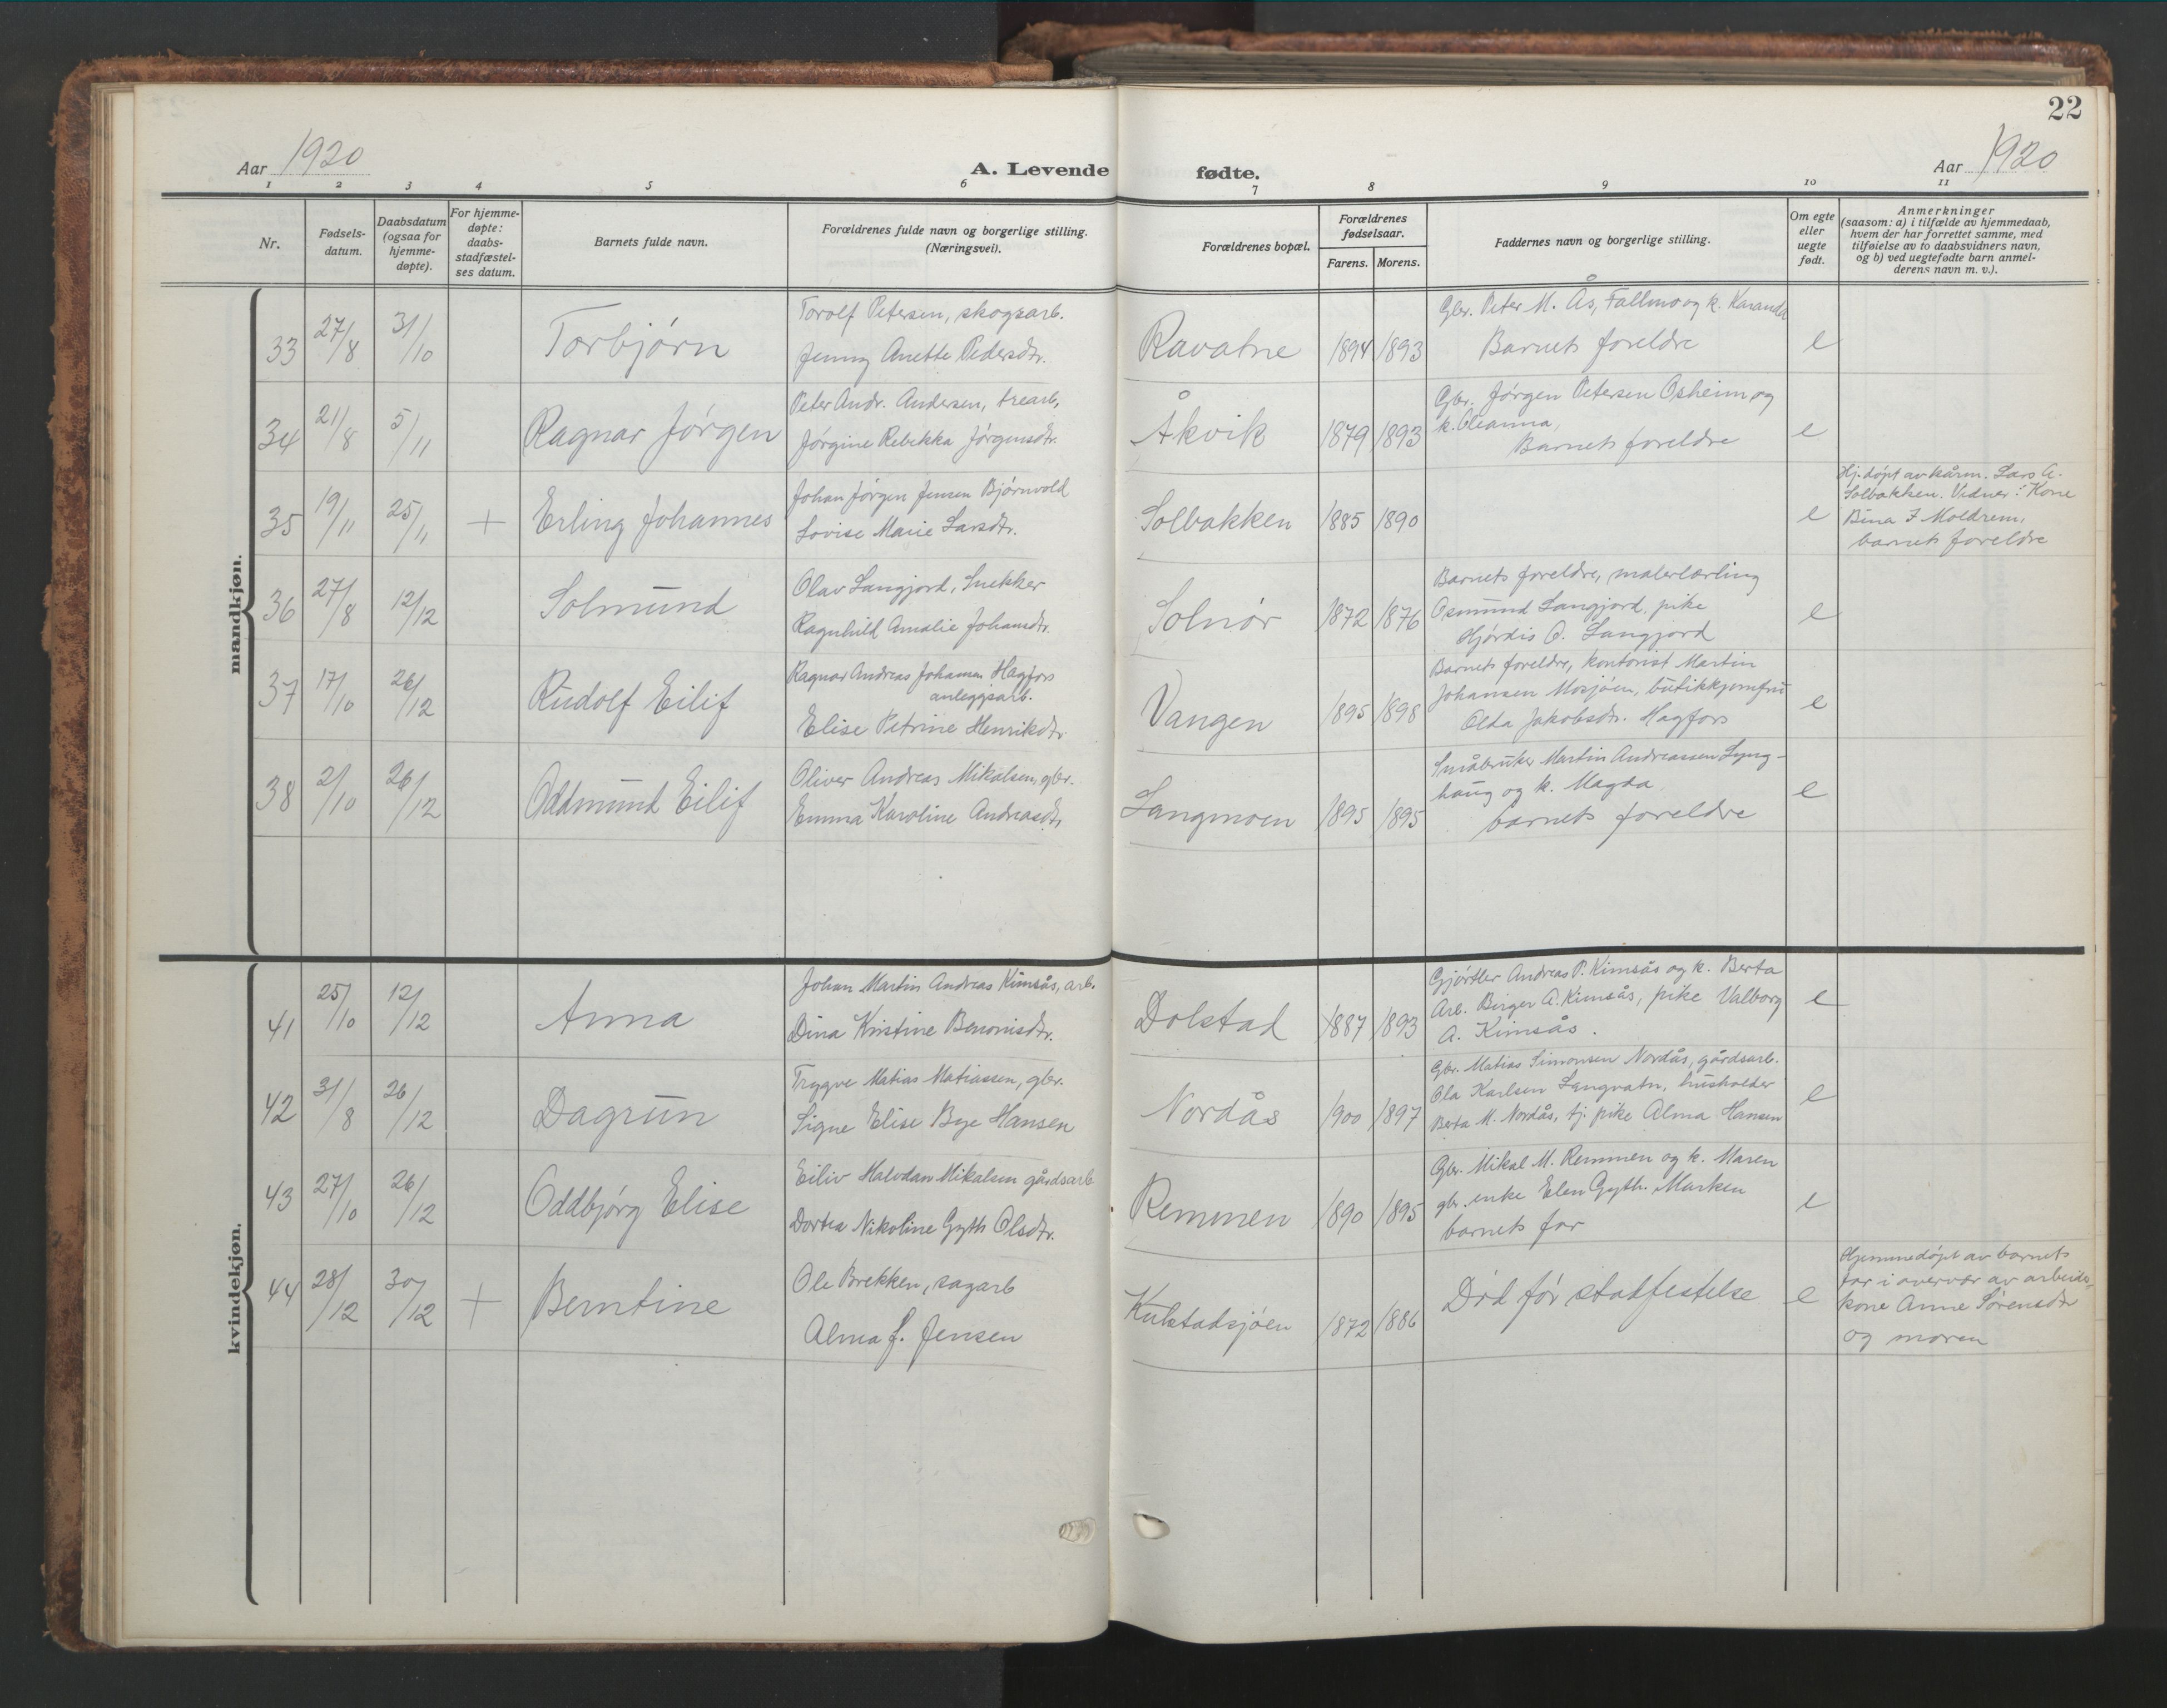 22
Aar 1920
A. Levende fødte.
Aar 1920
1 2 3 4 5 6 7 8 9 10 11
Nr.
Fødsels-
datum.
Daabsdatum
(ogsaa for
hjemme-
døpte).
For hjemme-
døpte:
daabs-
stadfæstel-
ses datum.
Barnets fulde navn.
Forældrenes fulde navn og borgerlige stilling.
(Næringsvei).
Forældrenes bopæl.
Forældrenes
fødselsaar.
Farens. Morens.
Faddernes navn og borgerlige stilling.
Om egte
eller
uegte
født.
Anmerkninger
(saasom: a) i tilfælde av hjemmedaab,
hvem der har forrettet samme, med
tilføielse av to daabsvidners navn,
og b) ved uegtefødte barn anmel-
derens navn m. v.).
mandkjøn.
33 27/8 31/10 Torbjørn
Torolf Petersen, skogsarb.
Jenny Anette Pedersdtr.
Ravatne 1894 1893
Gbr. Peter M. Ås, Fallmo og k. Karanda
Barnets foreldre
e
34 21/8 5/11 Ragnar Jørgen
Peter Andr. Andersen, trearb,
Jørgine Rebekka Jørgensdtr.
Åkvik 1879 1893
Gbr. Jørgen Petersen Osheim og
k. Oleanna,
Barnets foreldre
e
35 19/11 25/11 + Erling Johannes
Johan Jørgen Jensen Bjørnvold
Lovise Marie Larsdtr.
Solbakken 1885 1890
e
Hj.døpt av kårm. Lars A.
Solbakken. Vidner: Kone
Bina F Moldrem,
barnets foreldre
36 27/8 12/12 Solmund
Olav Langjord, Snekker
Ragnhild Amalie Johansdtr.
Solnør 1872 1876
Barnets foreldre, malerlærling
Osmund Langjord, pike
Hjørdis O. Langjord
e
37 17/10 26/12 Rudolf Eilif
Ragnar Andreas Johansen Hagfors
anleggsarb.
Elise Petrine Henriksdtr.
Vangen 1895 1898
Barnets foreldre, kontorist Martin
Johansen Mosjøen, butikkjomfru
Olda Jakobsdtr. Hagfors
e
38 2/10 26/12 Oddmund Eilif
Oliver Andreas Mikalsen, gbr.
Emma Karoline Andreasdtr.
Langmoen 1895 1895
Småbruker Martin Andreassen Lyng-
haug og k. Magda
barnets foreldre
e
kvindekjøn.
41 25/10 12/12 Anna
Johan Martin Andreas Kimsås, arb.
Dina Kristine Benonisdtr.
Dolstad 1887 1893
Gjørtler Andreas P. Kimsås og k. Berta
Arb. Birger A. Kimsås, pike Valborg
A. Kimsås.
e
42 31/8 26/12 Dagrun
Trygve Matias Matiassen, gbr.
Signe Elise Bye Hansen
Nordås 1900 1897
Gbr. Matias Simonsen Nordås, gårdsarb.
Ola Karlsen Langvatn, husholder
Berta M. Nordås, tj. pike Alma Hansen
e
43 27/10 26/12 Oddbjørg Elise
Eiliv Halvdan Mikalsen gårdsarb
Dortea Nikoline Gyth Olsdtr.
Remmen 1890 1895
Gbr. Mikal M. Remmen og k. Maren
gbr. enke Elen Gyth. Marken
barnets far
e
44 28/12 30/12 + Berntine
Ole Brekken, sagarb
Alma J. Jensen
Kulstadsjøen 1872 1886
Død før stadfestelse
e
Hjemmedøpt av barnets
far i overvær av arbeider-
kone Anne Sørensdtr
og moren